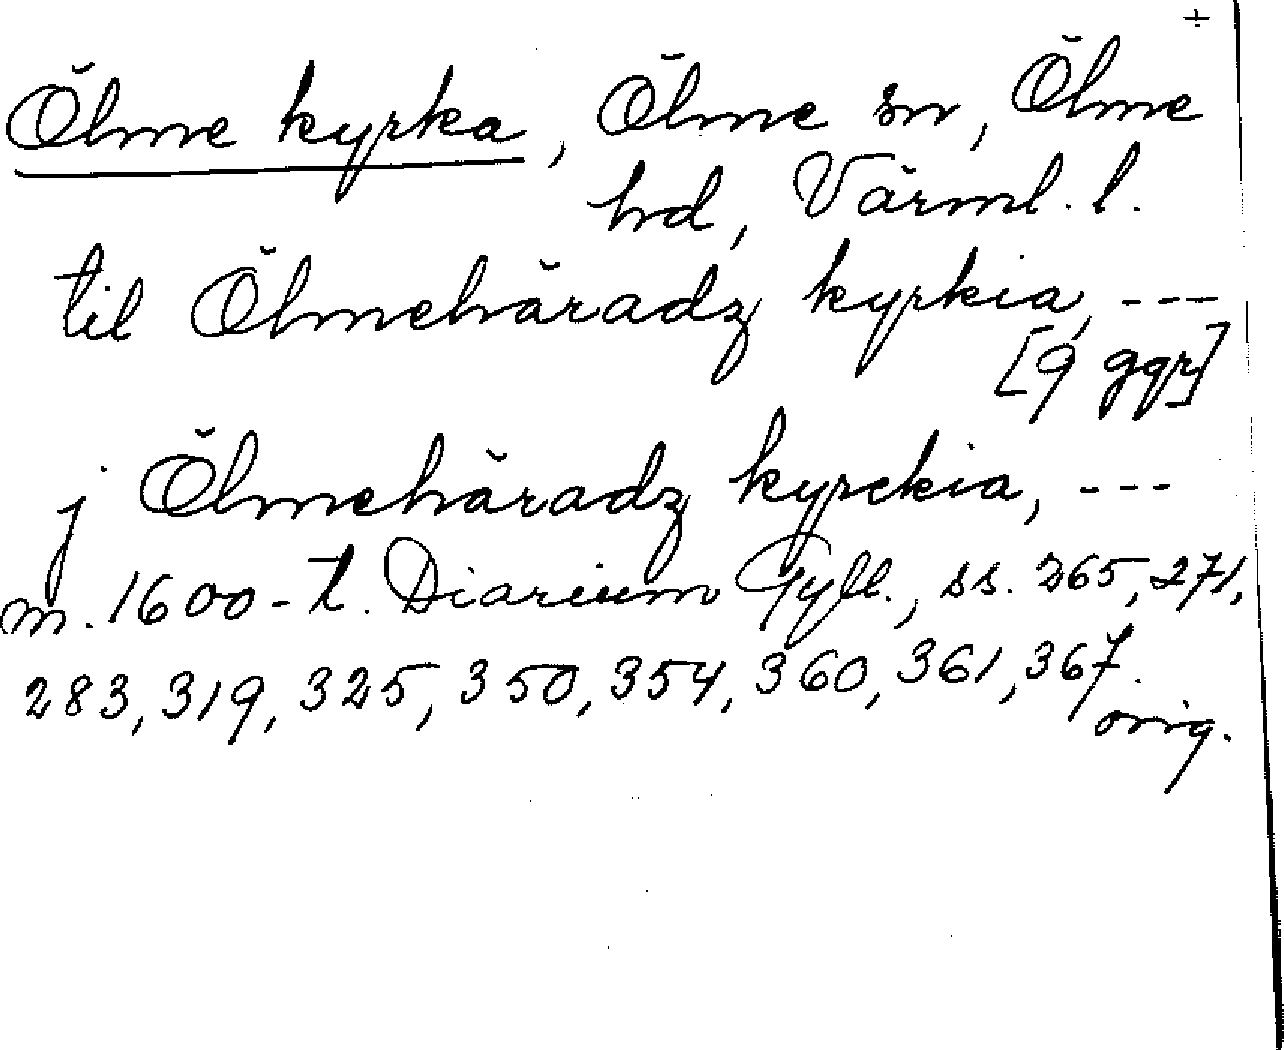 ÷
Ölme kyrka, Ölme sn, Ölme
hd, Värml. l.
til Ölmehäradz kyrkia, ---
[9 ggr]
j Ölmehäradz kyrckia, ---
m. 1600-t. Diarium Gyll., ss. 265, 271,
283, 319, 325, 350, 354, 360, 361, 367.
orig.